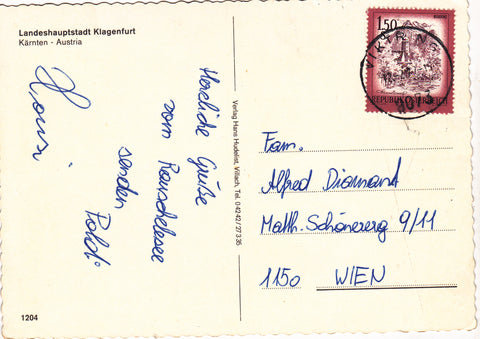 Landeshauptstadt Klagenfurt
Kärnten - Austria
Herzliche Grüße
vom Rauschelesee
senden
Poldi
1204
Verlag Hans Hudelist, Villach, Tel. 0 42 42 / 27 3 35
1.50
VIKTRING
REPUBLIK ÖSTERREICH
Fam.
Alfred Diamant
Matth. Schönererg 9/11
1150 WIEN